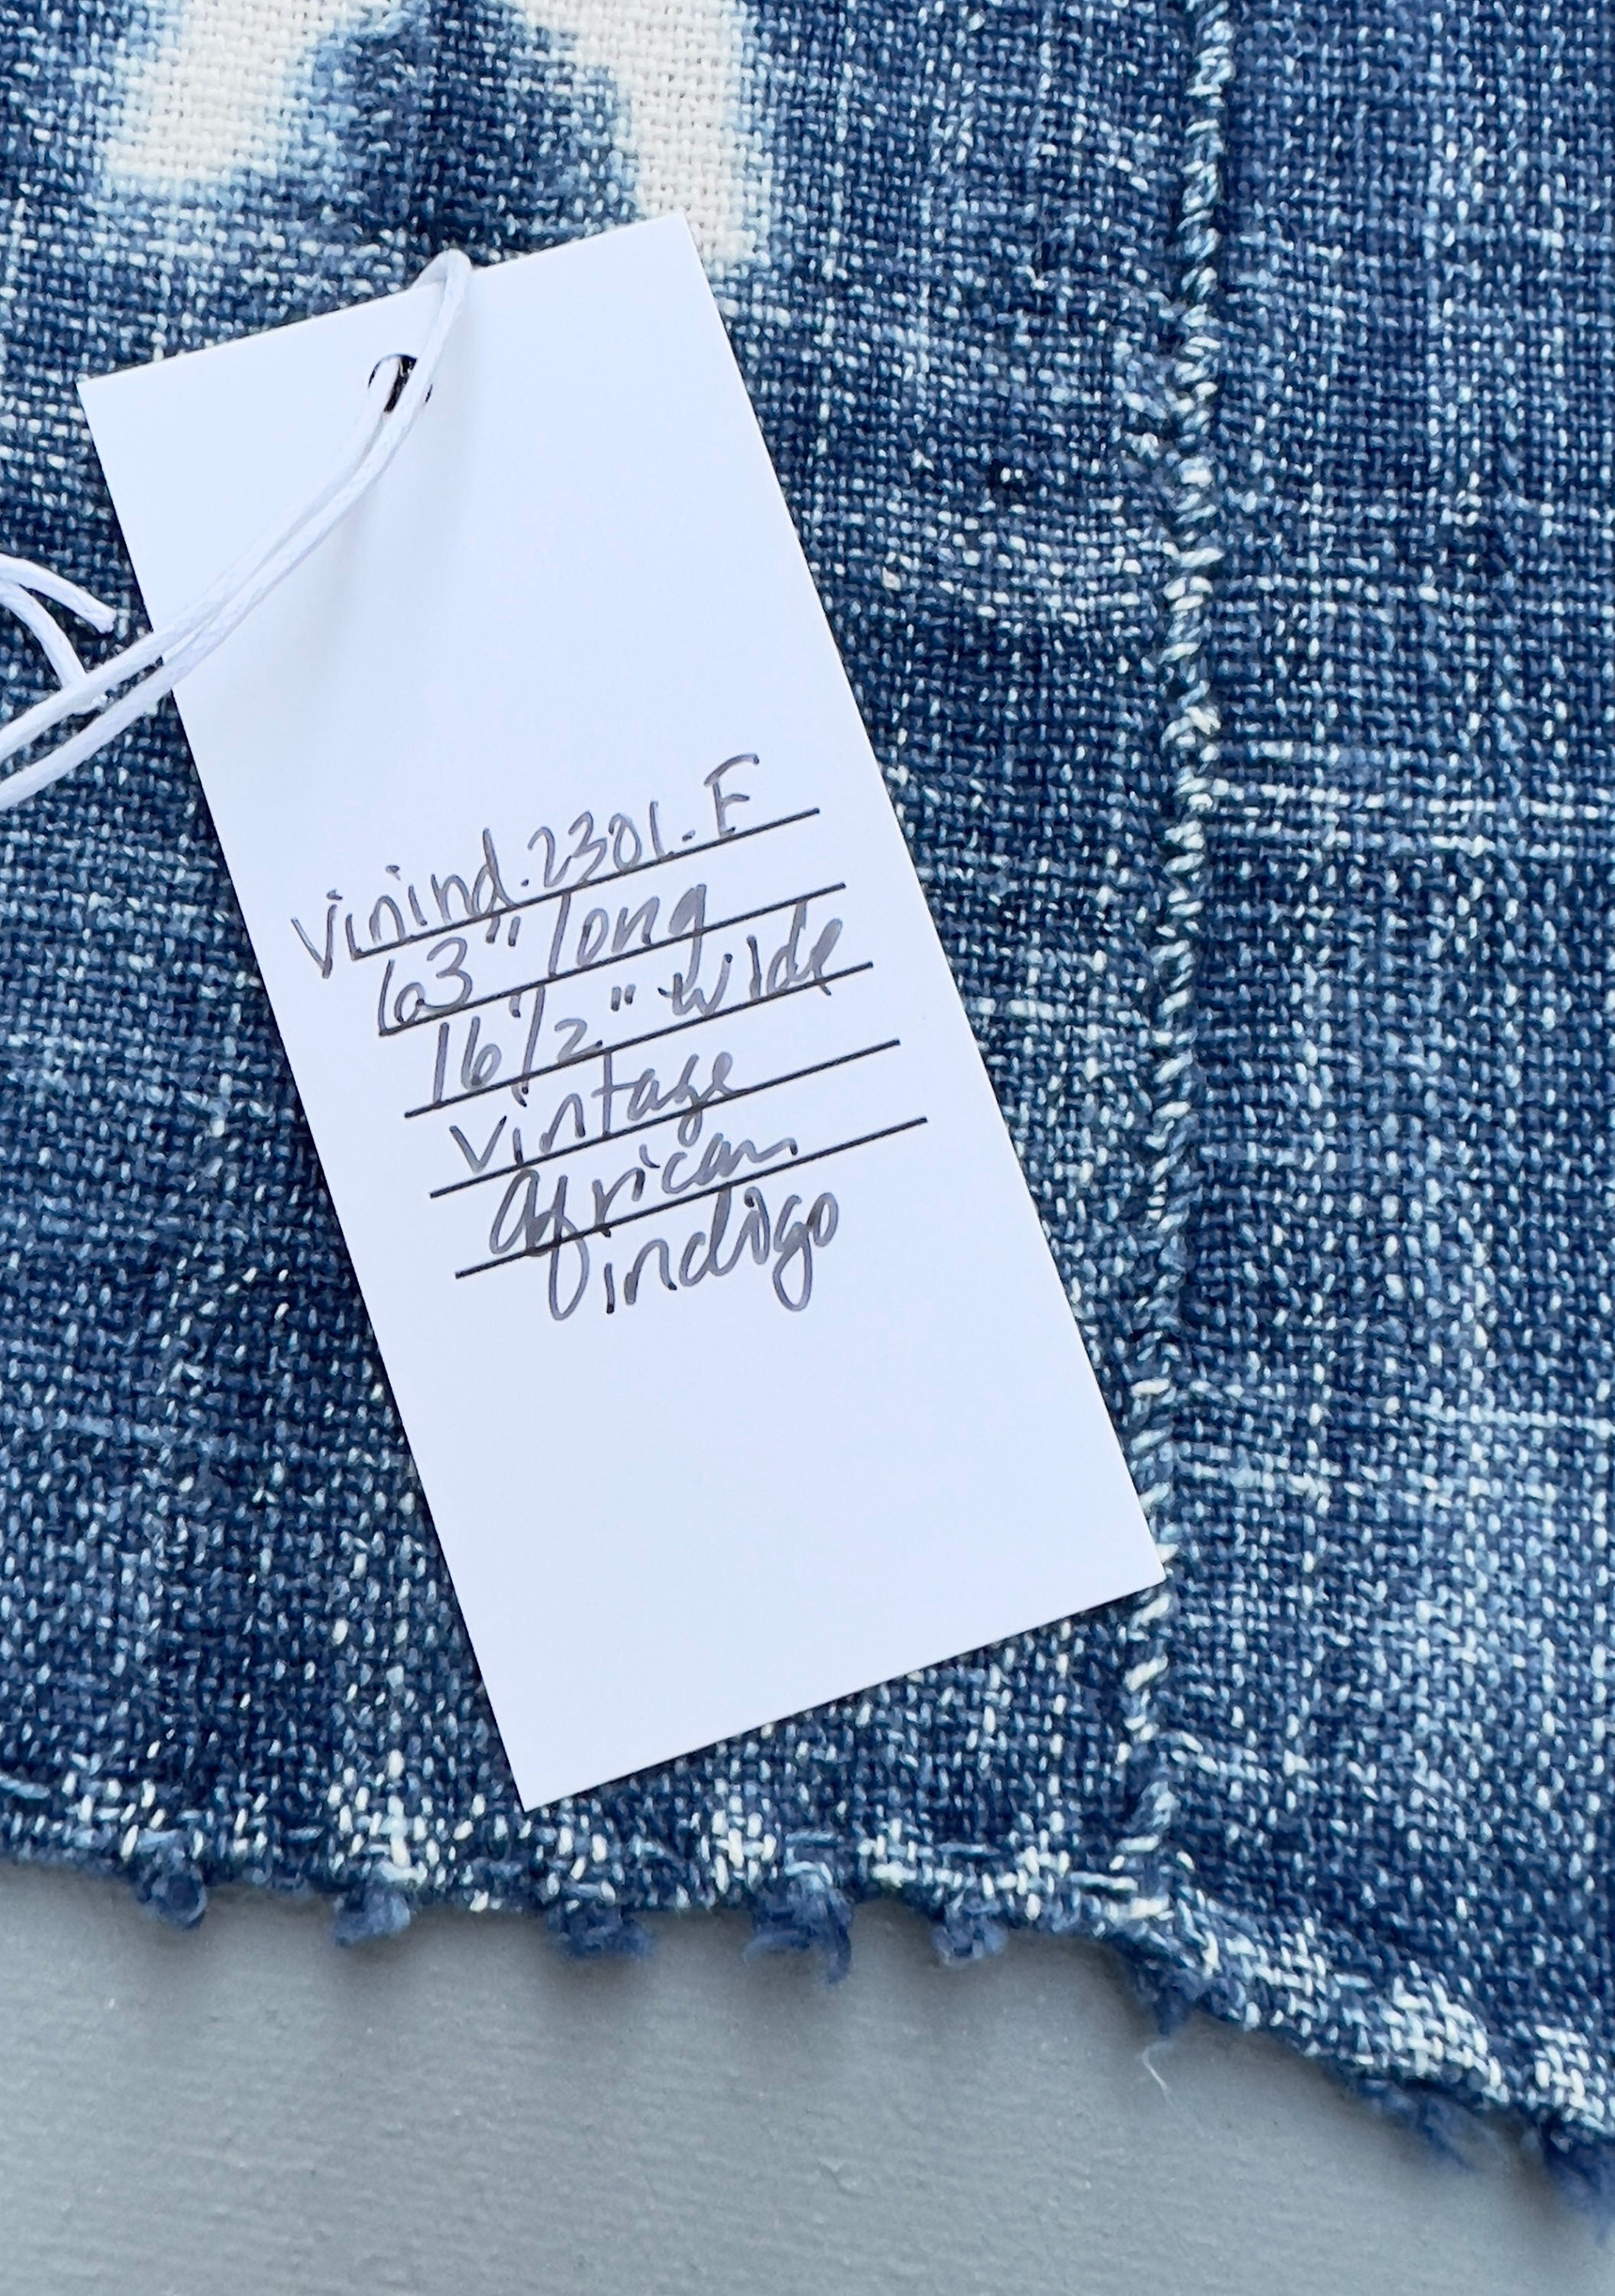 Vinind.2301.F
63" long
16 1/2" wide
vintage
african
indigo